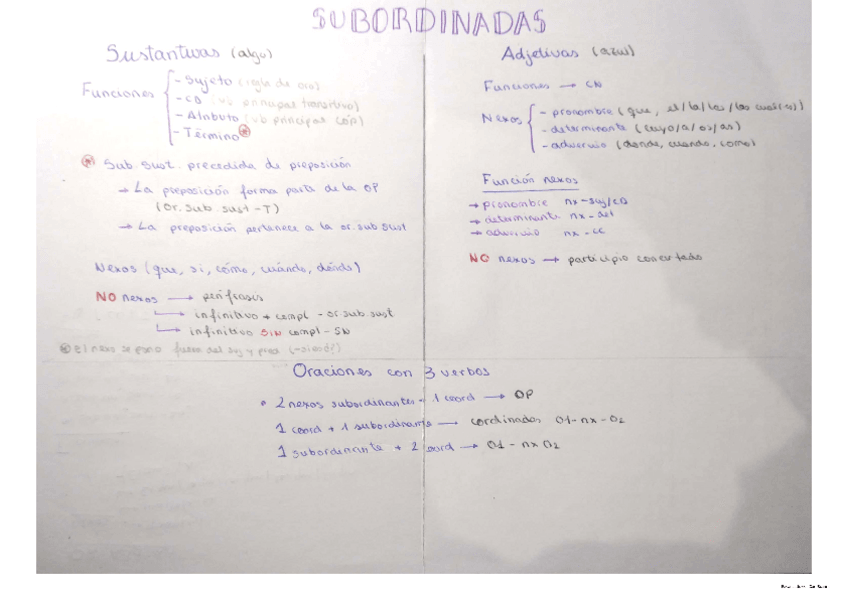 SUBORDINADAS
Sustantivas (algo)
Funciones
- Sujeto (regla de oro)
- CD (vb principal transitivo)
- Atributo (vb principal cop)
- Término *
* Sub. sust. precedida de preposición
→ La preposición forma parte de la OP
(or. sub. sust - T)
→ La preposición pertenece a la or. sub sust
Nexos (que, si, cómo, cuándo, dónde)
NO nexos → perífrasis
infinitivo + compl - or. sub. sust
infinitivo SIN compl - SN
El nexo se pone fuera del suj y pred
Adjetivas (azul)
Funciones → CN
Nexos
- pronombre (que, el/la/los/las cual(es))
- determinante (cuyo/a/os/as)
- adverbio (donde, cuando, como)
Función nexos
→ pronombre nx - suj/CD
→ determinante nx - det
→ adverbio nx - CC
NO nexos → participio concertado
Oraciones con 3 verbos
• 2 nexos subordinantes - 1 coord → OP
1 coord + 1 subordinante → coordinadas O1 - nx - O2
1 subordinante + 2 coord → O1 - nx O2